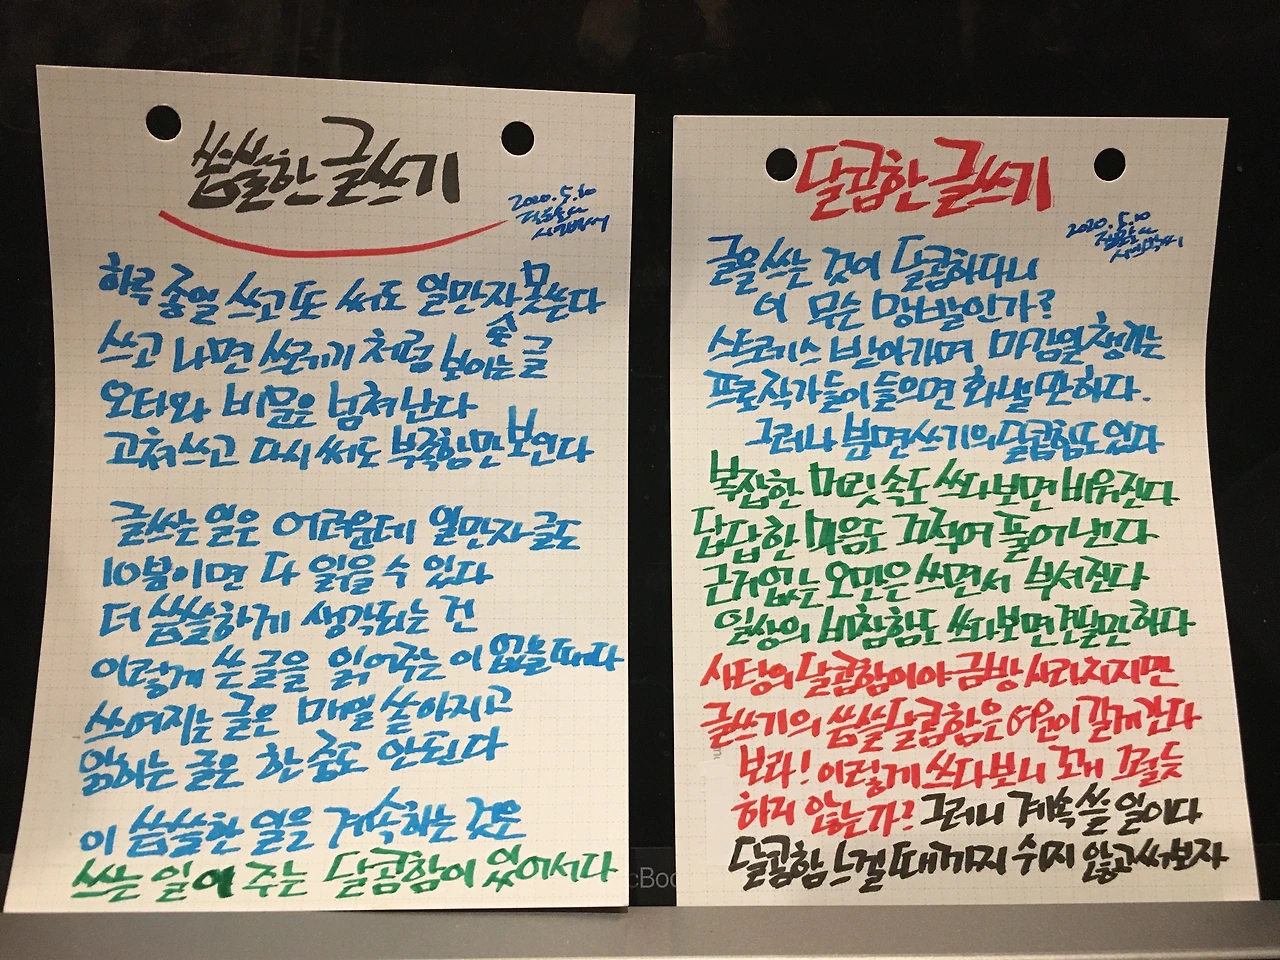 씁쓸한 글쓰기
2020.5.10
하루 종일 쓰고 또 써도 일만자 못쓴다
쓰고 나면 쓰레기처럼 보이는 글
오타와 비문은 넘쳐난다
고쳐쓰고 다시 써도 부족함만 보인다
글쓰는 일은 어려운데 일만자 글도
10분이면 다 읽을 수 있다
더 씁쓸하게 생각되는 건
이렇게 쓴 글을 읽어주는 이 없을 때다
쓰여지는 글은 매일 쏟아지고
읽히는 글은 한 줌도 안된다
이 씁쓸한 일을 계속하는 것은
쓰는 일이 주는 달콤함이 있어서다
달콤한 글쓰기
2020.5.10
글을 쓰는 것이 달콤하다니
이 무슨 망발인가?
스트레스 받아가며 마감일 챙기는
프로작가들이 들으면 화낼만하다.
그러나 분명 쓰기의 달콤함도 있다
복잡한 머릿속도 쓰다보면 비워진다
답답한 마음도 끄적여 풀어낸다
근거없는 오만은 쓰면서 부셔진다
일상의 비참함도 쓰다보면 견딜만하다
사탕의 달콤함이야 금방 사라지지만
글쓰기의 씁쓸달콤함은 여운이 길게 간다
보라! 이렇게 쓰다보니 꽤 그럴듯
하지 않는가? 그러니 계속 쓸 일이다
달콤함 느낄 때까지 쉬지 않고 써보자
cBoo